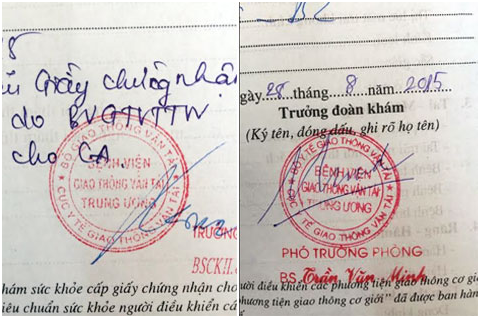 8
Giấy chứng nhận
do BVGTVTTW
cho CA
BỘ GIAO THÔNG VẬN TẢI
BỆNH VIỆN
GIAO THÔNG VẬN TẢI
TRUNG ƯƠNG
CỤC Y TẾ GIAO THÔNG VẬN TẢI
TRƯỞNG
BSCKII.
hám sức khỏe cấp giấy chứng nhận cho
iêu chuẩn sức khỏe người điều khiển cá
gày 28 tháng 8 năm 2015
Trưởng đoàn khám
(Ký tên, đóng dấu, ghi rõ họ tên)
BỆNH VIỆN
GIAO THÔNG VẬN TẢI
TRUNG ƯƠNG
PHÓ TRƯỞNG PHÒNG
BS. Trần Văn Minh
ười điều khiển các phương tiện giao thông cơ giớ
phương tiện giao thông cơ giới" đã được ban hàn